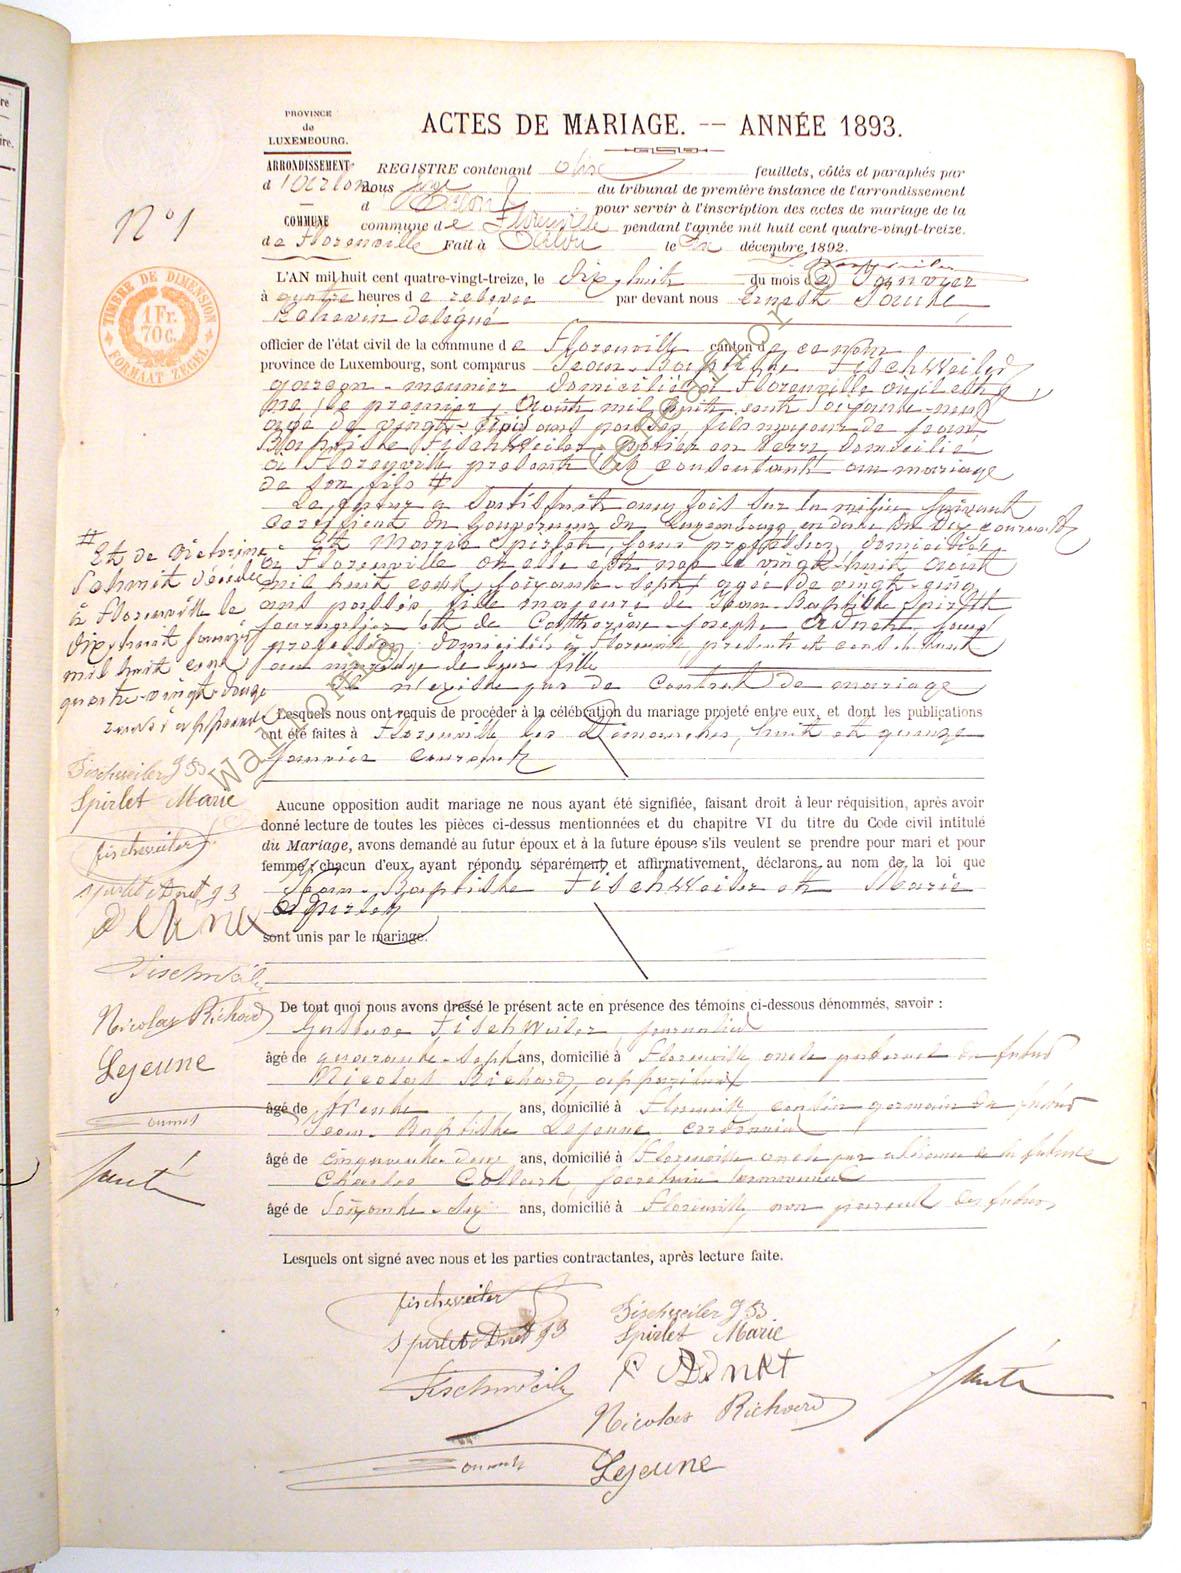 PROVINCE
de
LUXEMBOURG.
ARRONDISSEMENT
d'Arlon
COMMUNE
de Florenville
N° 1
TIMBRE DE DIMENSION
1 Fr.
70 c.
FORMAAT ZEGEL
ACTES DE MARIAGE. — ANNÉE 1893.
REGISTRE contenant feuillets, côtés et paraphés par
nous juge du tribunal de première instance de l'arrondissement
d'Arlon pour servir à l'inscription des actes de mariage de la
commune de Florenville pendant l'année mil huit cent quatre-vingt-treize.
Fait à Arlon le dix décembre 1892.
L'AN mil huit cent quatre-vingt-treize, le dix-huit du mois de Janvier
à quatre heures de relevée par devant nous Ernest Santé,
Echevin délégué
officier de l'état civil de la commune de Florenville canton de ce nom
province de Luxembourg, sont comparus Jean-Baptiste Fischweiler
garçon-meunier domicilié à Florenville où il est
né le premier Août mil huit cent soixante-neuf
âgé de vingt-trois ans passés, fils majeur de Jean
Baptiste Fischweiler, domicilié
à Florenville présent et consentant au mariage
de son fils #
Le futur a satisfait aux lois sur la milice suivant
certificat du Gouverneur du Luxembourg en date du dix courant
Et Marie Spirlet, sans profession, domiciliée
à Florenville où elle est née le vingt-huit Août
mil huit cent soixante-sept, âgée de vingt-cinq
ans passés, fille majeure de Jean-Baptiste Spirlet
journalier et de Catherine-Josèphe Adnet, sans
profession, domiciliés à Florenville présents et consentant
au mariage de leur fille
Il n'existe pas de contrat de mariage
# Et de Victorine
Schmit décédée
à Florenville le
dix-huit janvier
mil huit cent
quatre-vingt-douze
renvoi approuvé
Fischweiler J B
Spirlet Marie
fischweiler
Spirlet Adnet J B
Adnet
Fischweiler
Nicolas Richard
Lejeune
Santé
Lesquels nous ont requis de procéder à la célébration du mariage projeté entre eux, et dont les publications
ont été faites à Florenville les Dimanches, huit et quinze
Janvier courant
Aucune opposition audit mariage ne nous ayant été signifiée, faisant droit à leur réquisition, après avoir
donné lecture de toutes les pièces ci-dessus mentionnées et du chapitre VI du titre du Code civil intitulé
du Mariage, avons demandé au futur époux et à la future épouse s'ils veulent se prendre pour mari et pour
femme; chacun d'eux ayant répondu séparément et affirmativement, déclarons au nom de la loi que
Jean-Baptiste Fischweiler et Marie
Spirlet
sont unis par le mariage.
De tout quoi nous avons dressé le présent acte en présence des témoins ci-dessous dénommés, savoir :
Gustave Fischweiler, journalier
âgé de quarante-sept ans, domicilié à Florenville oncle paternel du futur
Nicolas Richard, appariteur
âgé de trente ans, domicilié à Florenville cousin germain du futur
Jean-Baptiste Lejeune
âgé de cinquante-deux ans, domicilié à Florenville oncle par alliance de la future
Charles Collart, secrétaire communal
âgé de soixante-six ans, domicilié à Florenville non parent des futurs
Lesquels ont signé avec nous et les parties contractantes, après lecture faite.
fischweiler
Fischweiler J B
Spirlet Adnet J B
Spirlet Marie
Fischweiler
Adnet
Santé
Nicolas Richard
Lejeune